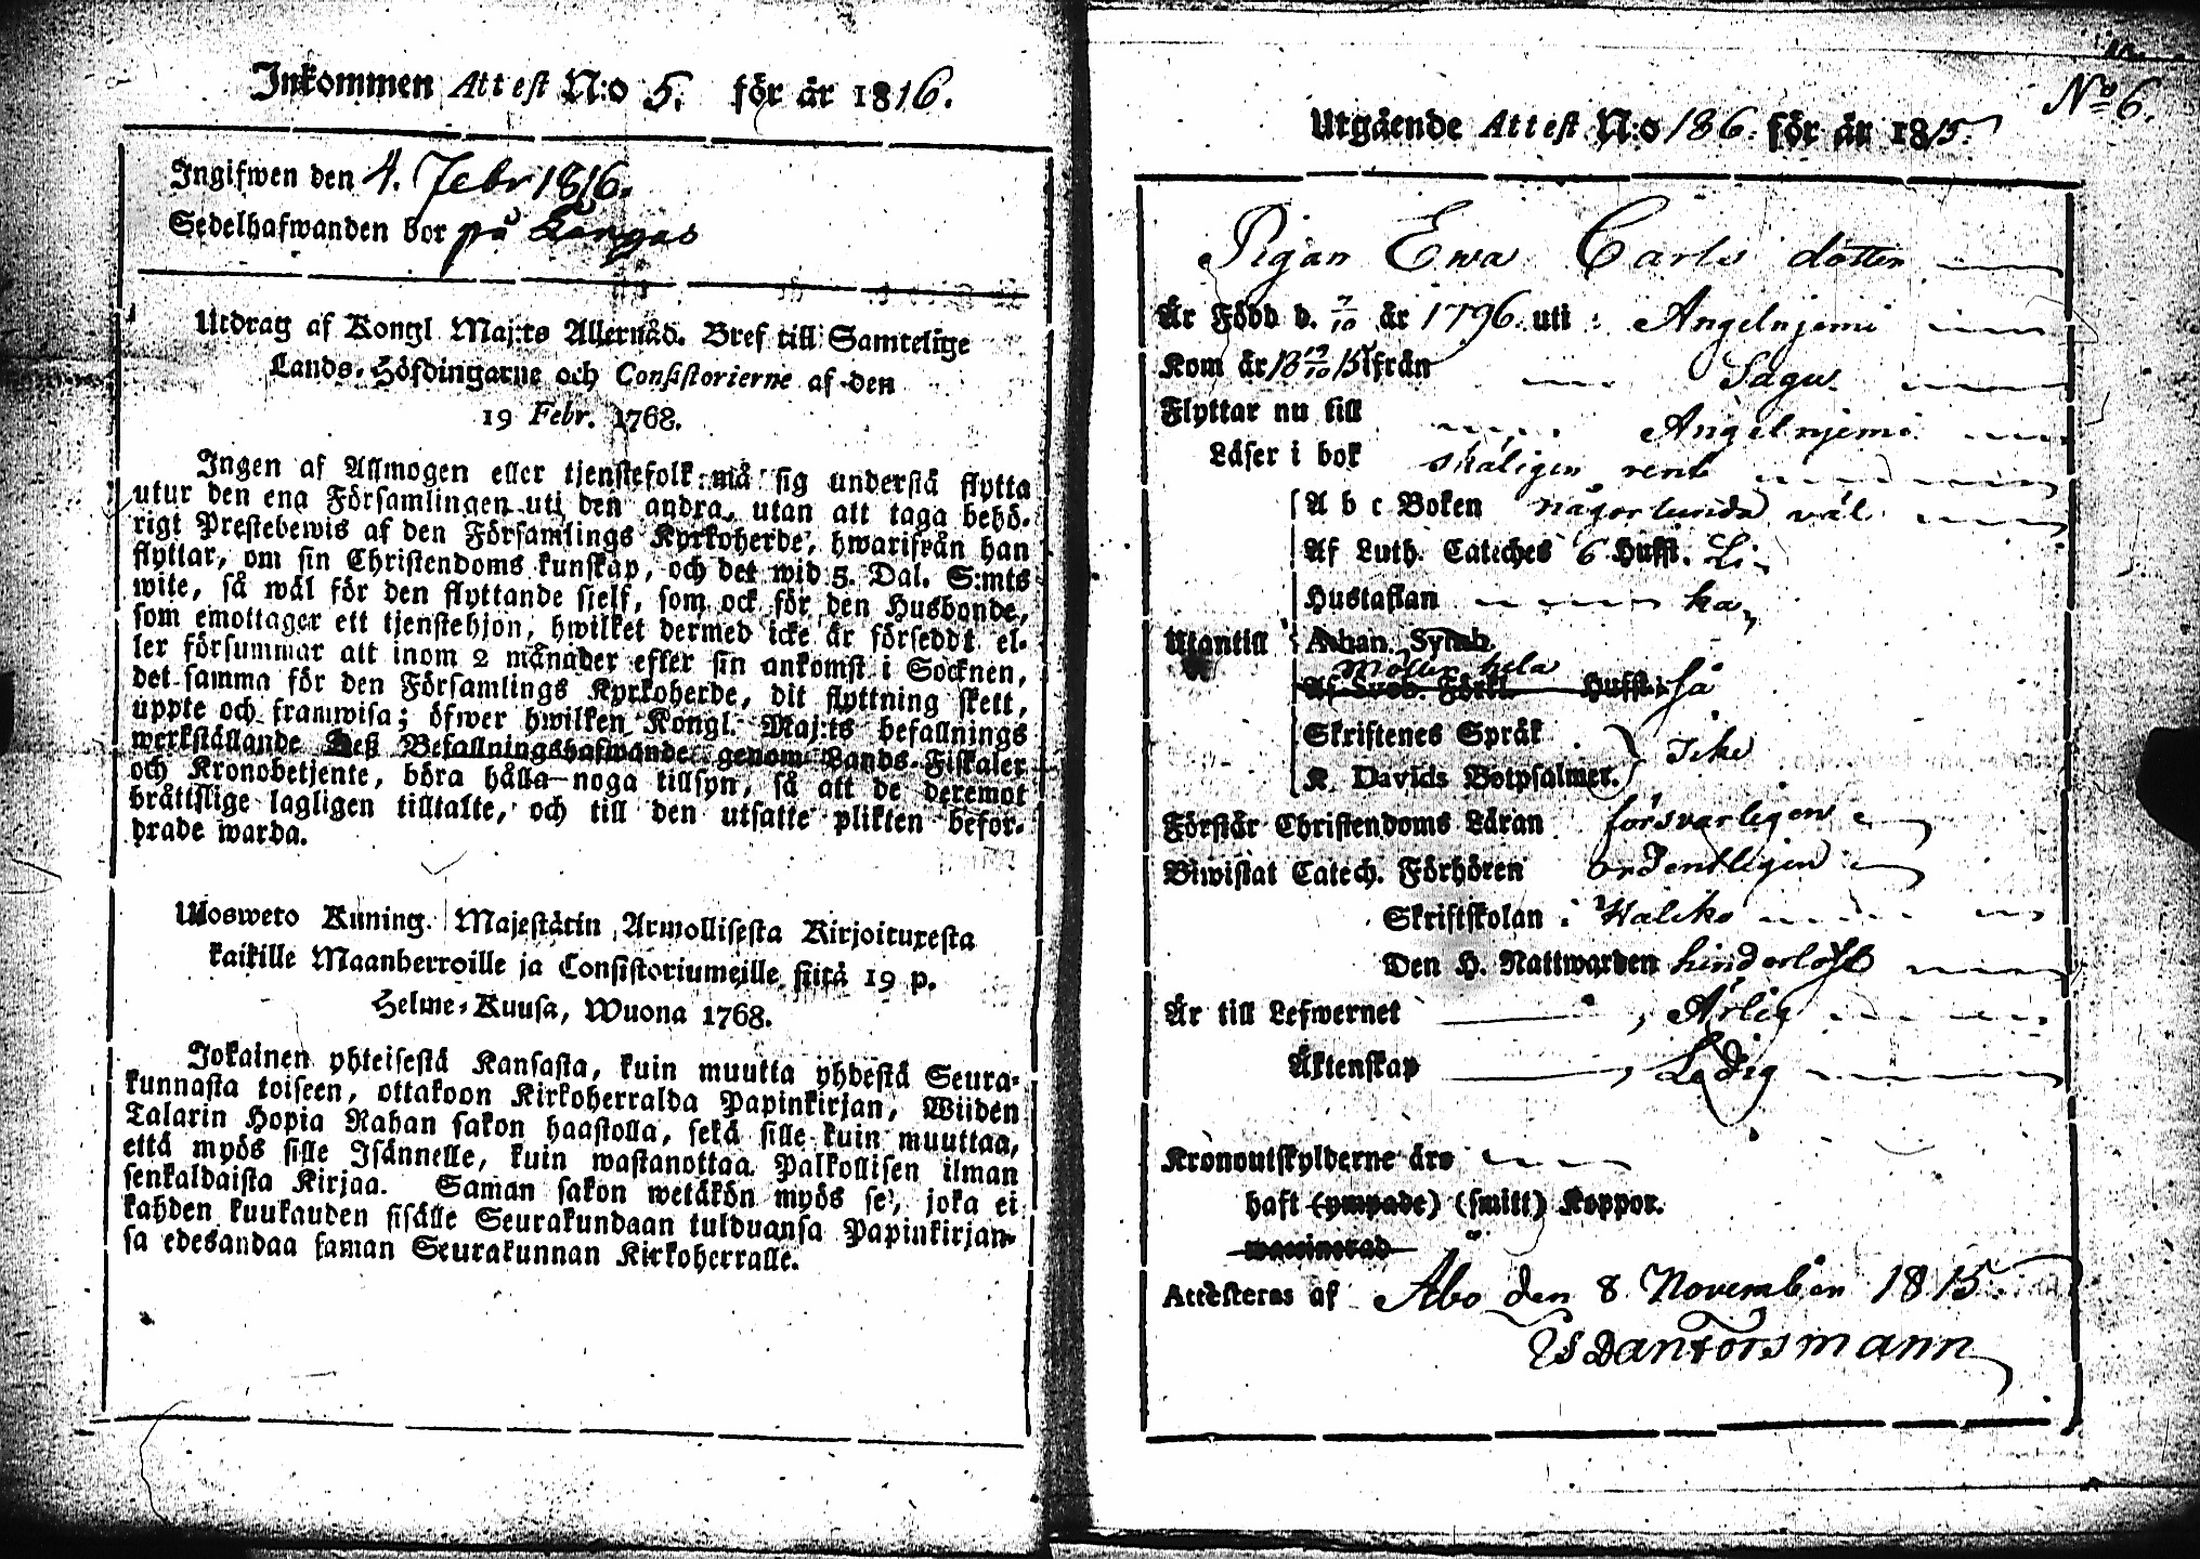 Inkommen Attest N:o 5. för år 1816.
Ingifwen den 4. Febr 1816.
Sedelhafwanden bor på Kangas
Utdrag af Kongl Maj:ts Allernåd. Bref till Samtelige
Lands-Höfdingarne och Consistorierne af den
19 Febr. 1768.
Ingen af Allmogen eller tjenstefolk må sig understå flytta
utur den ena Församlingen uti den andra, utan att taga behö-
rigt Prestebewis af den Församlings Kyrkoherde, hwarifrån han
flyttar, om sin Christendoms kunskap, och det wid 5. Dal. S:mts
wite, så wäl för den flyttande sielf, som ock för den Husbonde,
som emottager ett tjenstehjon, hwilket dermed icke är försedt el-
ler försummar att inom 2 månader efter sin ankomst i Socknen,
det samma för den Församlings Kyrkoherde, dit flyttning skett,
uppte och framwisa; öfwer hwilken Kongl. Maj:ts befallnings
werkställande Deß Befallningshafwande genom Lands-Fiskaler
och Kronobetjente, böra hålla noga tillsyn, så att de deremot
bråttslige lagligen tilltalte, och till den utsatte plikten befor-
drade warda.
Ulosweto Kuning. Majestätin Armollisesta Kirjoituxesta
kaikille Maanherroille ja Consistoriumeille siitä 19 p.
Helme-Kuusa, Wuona 1768.
Jokainen yhteisestä Kansasta, kuin muutta yhdestä Seura-
kunnasta toiseen, ottakoon Kirkoherralda Papinkirjan, Wiiden
Talarin Hopia Rahan sakon haastolla, sekä sille kuin muuttaa,
että myös sille Isännelle, kuin wastanottaa Palkollisen ilman
senkaldaista Kirjaa. Saman sakon wetäkön myös se, joka ei
kahden kuukauden sisälle Seurakundaan tulduansa Papinkirjan-
sa edesandaa saman Seurakunnan Kirkoherralle.
N:o 6.
Utgående Attest N:o 186. för år 1815.
Pigan Ewa Carls dotter
Är Född d. 7/10 år 1796. uti Angelnjemi
Kom år 18 /10 15 ifrån Sagu
Flyttar nu till Angelnjemi
Läser i bok skäligen rent
A b c Boken någorlunda väl
Af Luth. Cateches 6 Hufst. Li-
Hustaflan ka
Utantill Athan. Symb.
Möllers hela
Af Sveb. Förkl. Hufst. så
Skriftenes Språk
Icke
K. Davids Botpsalmer.
Förstår Christendoms Läran försvarligen
Biwistat Catech. Förhören ordentligen
Skriftskolan
Den H. Nattwarden hinderlöst
Är till Lefwernet Ärlig
Äktenskap Ledig
Kronoutskylderne äro
haft (ympade) (smitt) Koppor.
waccinerad
Attesteras af Åbo den 8 November 1815.